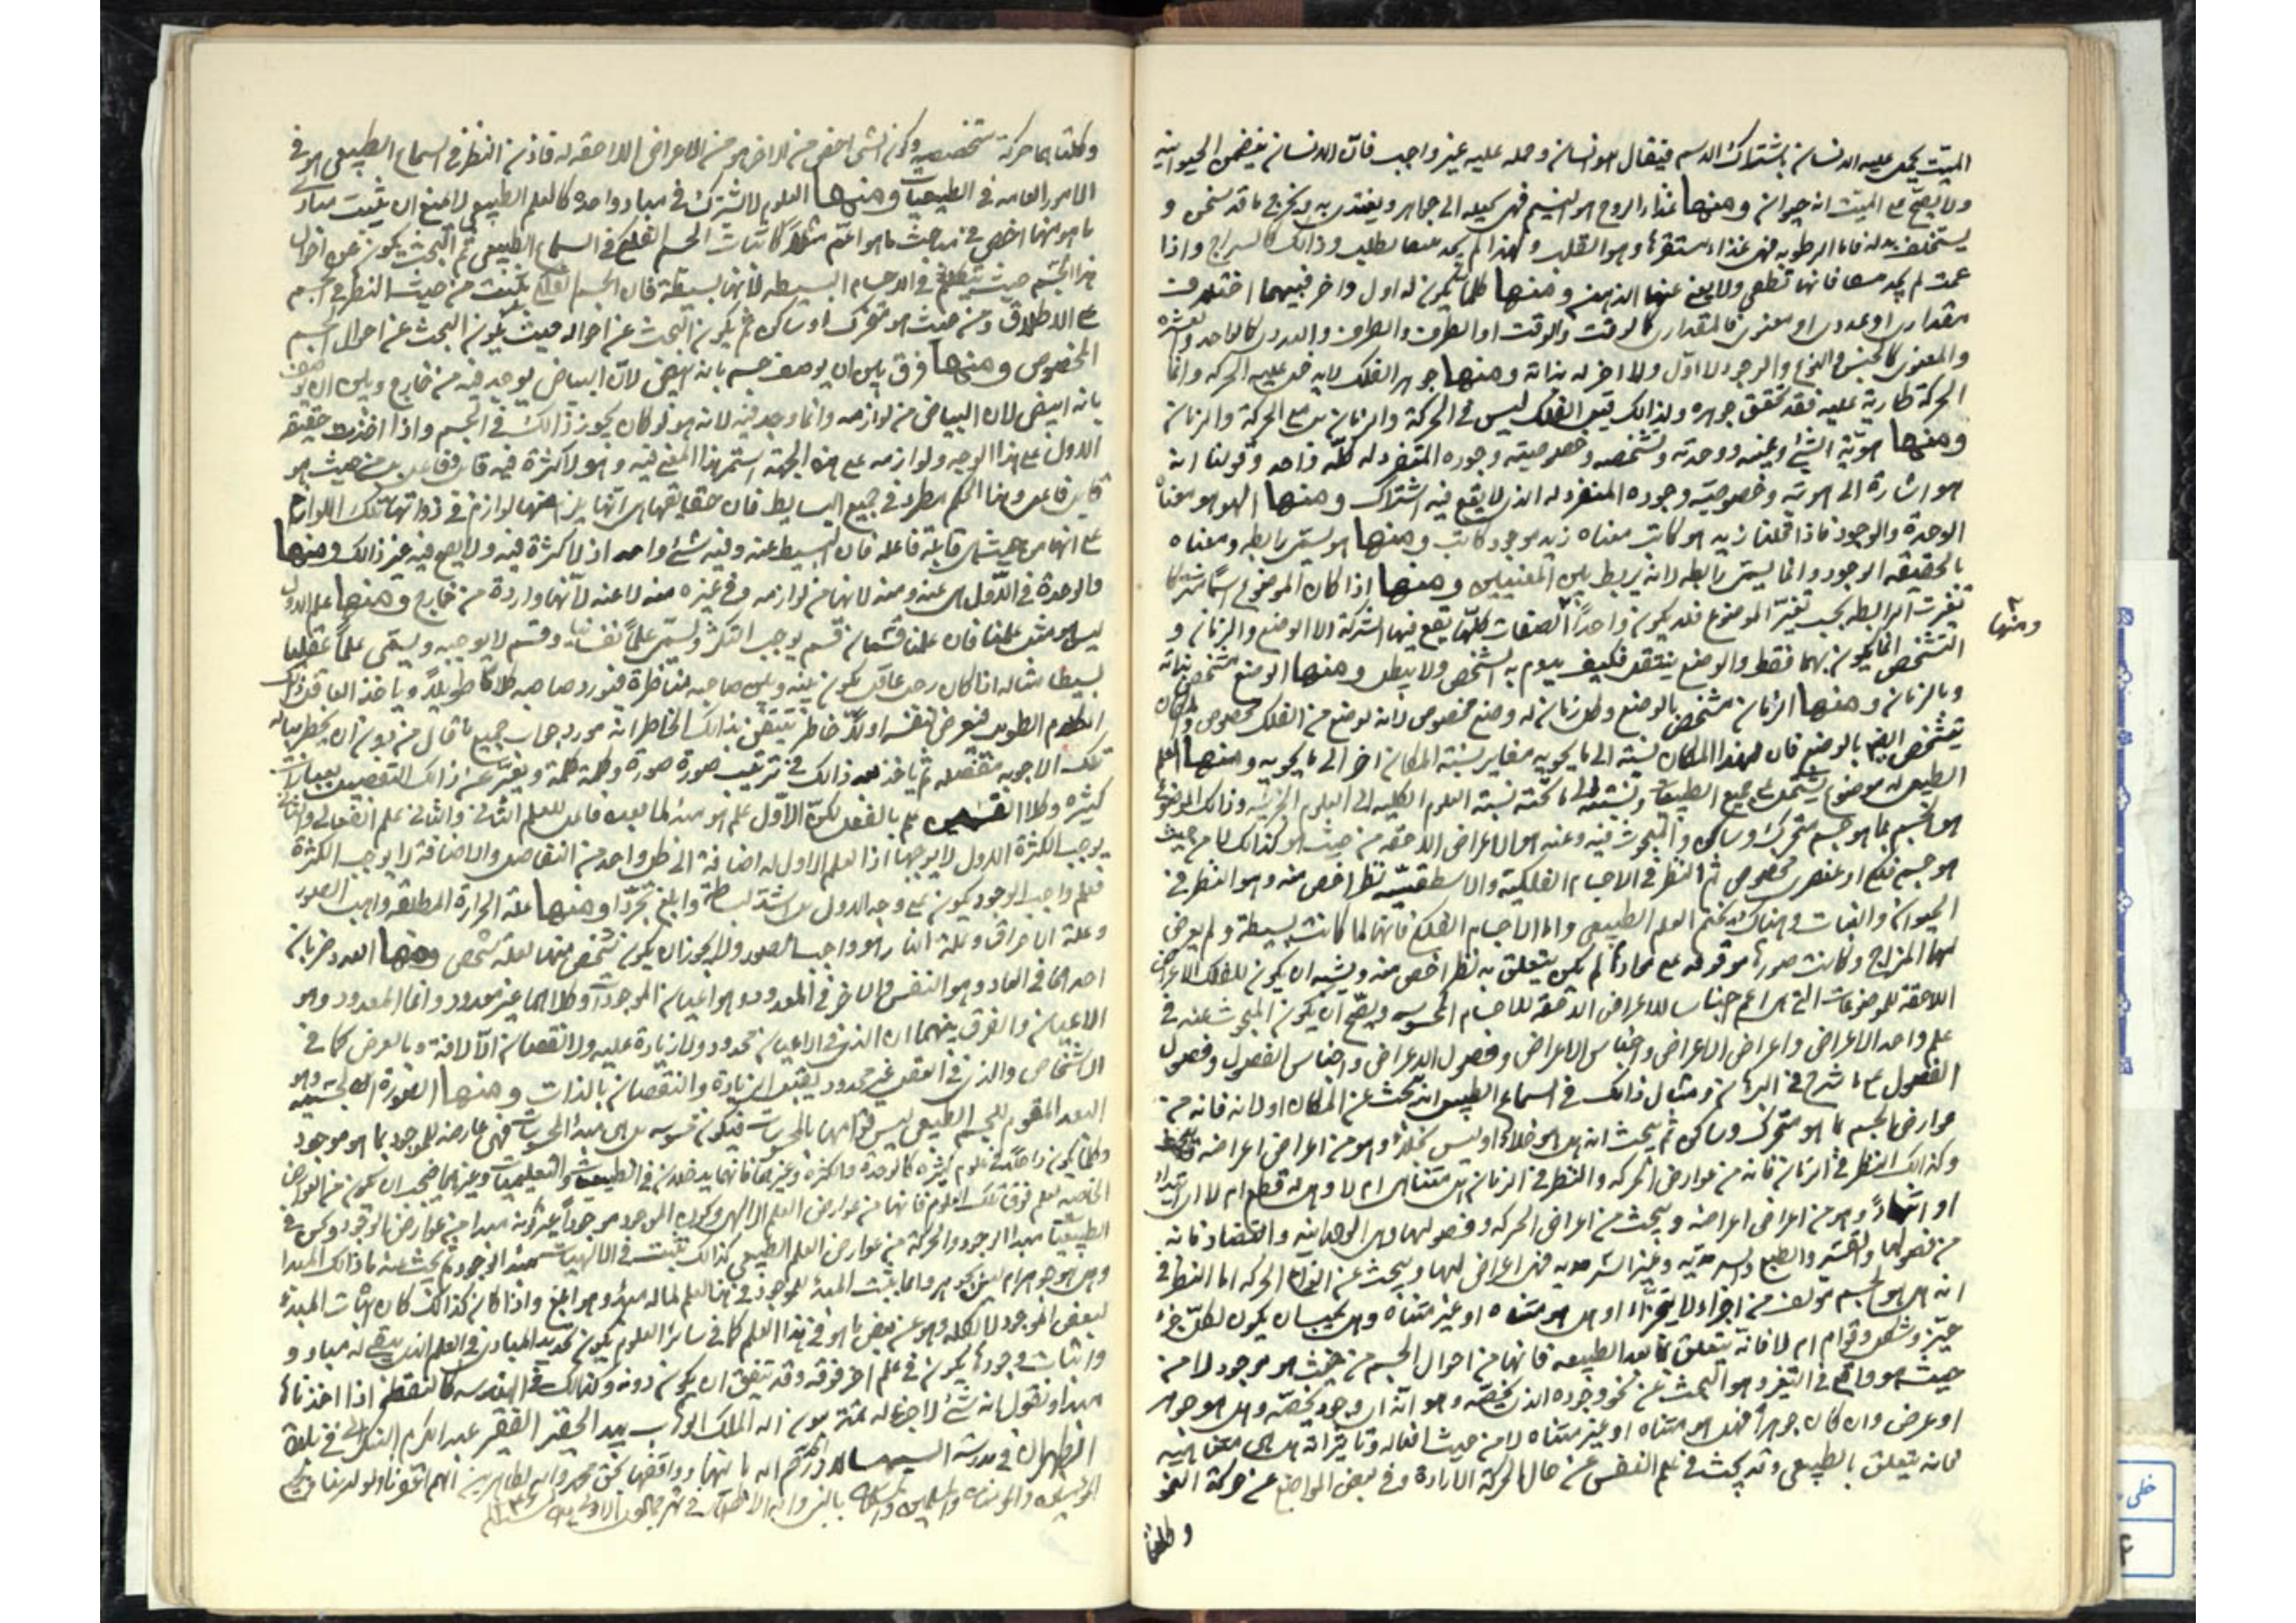 الميت يحمل عليه الانسان باشتراك الاسم فيقال هو انسان وحمله عليه غير واجب فان الانسان يتضمن الحيوانية
ولا يصح على الميت انه حيوان ومنها غذاء الروح هو النسيم فهى تحيله الى جوهرها ويغتذى به ويخرج ما قد تسخن و
يستخلف بدله فاما الرطوبة فهى غذاء مستقرها وهو القلب ولهذا لم يجد معها لطلب وذلك كالسراج واذا
عدمت لم يجد معها فانها تنطفى ولا يغنى عنها الدهن ومنها كلما يكون له اول واخر فبينهما اختلاف
مقدارى او عددى او معنوى فالمقدارى كالوقت والوقت او الطرف والطرف والعددى كالواحد والعشرة
والمعنوى كالجنس والنوع والوجود لا اول ولا اخر له بذاته ومنها جوهر الفلك لا يدخل عليه الحركة وانما
الحركة طارية عليه فقد تحقق جوهره ولذلك قيل الفلك ليس فى الحركة والزمان بل مع الحركة والزمان
ومنها هوية الشئ وعينه ووحدته وتشخصه وخصوصيته وجوده المتفرد له كله واحد وقولنا انه
هو اشارة الى هويته وخصوصية وجوده المنفرد له الذى لا يقع فيه اشتراك ومنها الهو هو معناه
الوحدة والوجود فاذا قلنا زيد هو كاتب معناه زيد موجود كاتب ومنها هو يسمى رابطة ومعناه
بالحقيقة الوجود وانما يسمى رابطة لانه يربط بين المعنيين ومنها اذا كان الموضوع اسما مشتركا
تغيرت الرابطة بحسب تغير الموضوع فلا يكون واحدا الصفات كلها يقع فيها الشركة الا الوضع والزمان و
ومنها
التشخص انما يكون بهما فقط والوضع ينتقل فكيف يدوم به الشخص ولا يبطل ومنها الوضع متشخص بذاته
وبالزمان ومنها الزمان متشخص بالوضع وكل زمان له وضع مخصوص لانه لوضع من الفلك مخصوص والمكان
يتشخص ايضا بالوضع فان لهذا المكان نسبة الى ما يحويه مغاير لنسبة المكان اخر الى ما يحويه ومنها العلم
الطبيعى له موضوع يشتمل على جميع الطبيعيات ونسبته الى ما تحته نسبة العلوم الكلية الى العلوم الجزئية وذلك الموضوع
هو الجسم بما هو جسم متحرك وساكن والمبحوث فيه وعنه هو الاعراض اللاحقة من حيث هو كذلك لا من حيث
هو جسم فلكى او عنصرى مخصوص ثم النظر فى الاجسام الفلكية والاسطقسية نظر اخص منه وهو النظر فى
الحيوان والنبات وهناك يختم العلم الطبيعى واما الاجسام الفلكية فانها لما كانت بسيطة ولم يعرض
لها المزاج وكانت صورها موقوفة على موادها لم يكن يتعلق به نظر اخص منه ويشبه ان يكون للفلك الاعراض
اللاحقة للموضوعات التى هى اعم اجناسا للاعراض اللاحقة للاجسام المحسوسة ويصح ان يكون المبحوث عنه فى
علم واحد الاعراض واعراض الاعراض واجناس الاعراض وفصول الاعراض واجناس الفصول وفصول
الفصول على ما شرح فى البرهان ومثال ذلك فى السماع الطبيعى انه يبحث عن المكان اولا انه فانه من
عوارض الجسم بما هو متحرك وساكن ثم يبحث انه هل هو خلاء او ليس بخلاء وهو من اعراض اعراضه
وكذلك النظر فى الزمان فانه من عوارض الحركة والنظر فى الزمان هل متناهى ام لا وهل له قطع ام لا
وهو من اعراض اعراضه ويبحث من اعراض الحركة وفصولها وهى الوحدانية والتضاد فانه
من فصولها والقسر والطبع والسرمدية وغير السرمدية فهى اعراض لها ويبحث عن انواع الحركة اما النظر فى
انه هل هو الجسم مؤلف من اجزاء لا يتجزاء او هل هو متناه او غير متناه وهل يجب ان يكون لكل جزء
حيز وشكل وقوام ام لا فانه يتعلق بما بعد الطبيعة فانها من احوال الجسم من حيث هو موجود لا من
حيث هو واقع فى التغير وهو البحث عن نحو وجوده الذى يخصه وهو انه اى وجود يخصه وهل هو جوهر
او عرض وان كان جوهرا فهل هو متناه او غير متناه لا من حيث افعاله وتاثيراته هل هى متناهية
فانه يتعلق بالطبيعى وقد يبحث فى علم النفس عن حال الحركة الارادة وفى بعض المواضع عن حركة النمو
وكلتا
وكلتاهما حركة متخصصة وكون الشئ اخص من الاخر هو من الاعراض اللاحقة له فاذن النظر فى السماع الطبيعى هو فى
الامور العامة فى الطبيعيات ومنها العلوم لا تشترك فى مباد واحدة كالعلم الطبيعى لا يمنع ان يثبت مبادى
ما هو منها اخص فى مباحث ما هو اعم مثلا كاثبات الجسم الفلكى فى السماع الطبيعى ثم البحث يكون عن احوال
هذا الجسم حيث يتكلم فى الاجسام البسيطة لانها بسيطة فان الجسم الفلكى يثبت من حيث النظر فى الجسم
على الاطلاق ومن حيث هو متحرك او ساكن ثم يكون البحث عن احواله حيث يكون البحث عن احوال الجسم
المخصوص ومنها فرق بين ان يوصف جسم بانه ابيض لان البياض يوجد فيه من خارج وبين ان يوصف
بانه ابيض لان البياض من لوازمه وانما وجد فيه لانه هو لو كان يجوز ذلك فى الجسم واذا اخذت حقيقة
الاول على هذا الوجه ولوازمه على هذه الجهة استمر هذا المعنى فيه وهو لا كثرة فيه قابل وفاعل بل من حيث هو
قابل فاعل وهذا الحكم مطرد فى جميع البسايط فان حقايقها هى انها يلزم عنها لوازم فى ذواتها تلك اللوازم
على انها من حيث هى قابلة فاعلة فان البسيط عنه وفيه شئ واحد اذ لا كثرة فيه ولا يصح فيه غير ذلك ومنها
فالوحدة فى الاول هى عنه ومنه لانها من لوازمه وفى غيره منه لا عنه لانها واردة من خارج ومنها علم الاول
ليس هو مثل علمنا فان علمنا قسمان قسم يوجب التكثر ويسمى علما نفسانيا وقسم لا يوجبه ويسمى علما عقليا
بسيطا مثاله اذا كان رجل عاقل يكون بينه وبين صاحبه مناظرة فيورد صاحبه كلاما طويلا وياخذ العاقل ذلك
الكلام الطويل فيعرض لنفسه اولا خاطر يتيقن بذلك الخاطر انه مورد جواب جميع ما قال من دون ان يخطر بباله
تلك الاجوبة مفصلة ثم ياخذ بعد ذلك فى ترتيب صورة صورة وكلمة كلمة ويعبر عن ذلك التفصيل بعبارات
كثيرة وكلا القسمين علم بالفعل لكن الاول علم هو مبدء لما بعده فاعل للعلم الثانى والثانى علم انفعالى والثانى
يوجب الكثرة الاول لا يوجبها اذا العلم الاول له اضافة الى كل واحد من التفاصيل والاضافة لا يوجب الكثرة
فعلم واجب الوجود يكون على وجه الاول بل اشد بساطة وابلغ تجردا ومنها علة الحرارة المطلقة واهب الصور
وعلة الاحراق وعلة النار هو واهب الصور ولا يجوز ان يكون شخص منها لعلة شخص ومنها العدد ضربان
احدهما فى العاد وهو النفس والاخر فى المعدود وهو اعيان الموجودات وكلاهما غير معدود وانما المعدود وهو
الاعيان والفرق بينهما ان الذى فى الاعيان محدود ولا زيادة عليه ولا نقصان الا لافة وبالعرض كما فى
الاشخاص والذى فى العقل غير محدود يقبل الزيادة والنقصان بالذات ومنها الصورة الجسمية وهو
البعد المقوم للجسم الطبيعى ليس قوامها بالمحسوسات فيكون محسوسه بل هى مبدء المحسوسات فهى عارضه للموجود بما هو موجود
وكلما يكون داخلا فى علوم كثيرة كالوحدة والكثرة وغيرهما فانهما يدخلان فى الطبيعيات والتعليميات وغيرهما فيجب ان يكون من العوارض
الخاصة لعلم فوق تلك العلوم فانهما من عوارض العلم الالهى وكون الموجود موجودا
الطبيعيات مبدا الوجود والحركة من عوارض العلم الطبيعى كذلك يثبت فى الالهيات مبدء الوجود ثم يبحث عنه ما ذلك المبدا
وهل هو جوهر ام ليس بجوهر وانما يثبت المبدء للموجود فى هذا العلم لما له مبدء وهو ابلغ واذا كان كذلك كان اثبات المبدء
لبعض الموجود لا لكله وهو عن بعض ما هو فى هذا العلم كما فى سائر العلوم يكون تحديد المبادى فى العلم الذى يبقى له مباد و
واثبات وجودها يكون فى علم اخر فوقه وقد يتفق ان يكون دونه وكذلك فى الهندسة كالنقطة اذا اخذناها
مبدا ونقول انه شئ لا جزء له تمت بعون اله الملك الوهاب بيد الحقير الفقير عبد الكريم فى بلدة
الطهران فى مدرسة
المؤمنين والمؤمنات والمسلمين والمسلمات